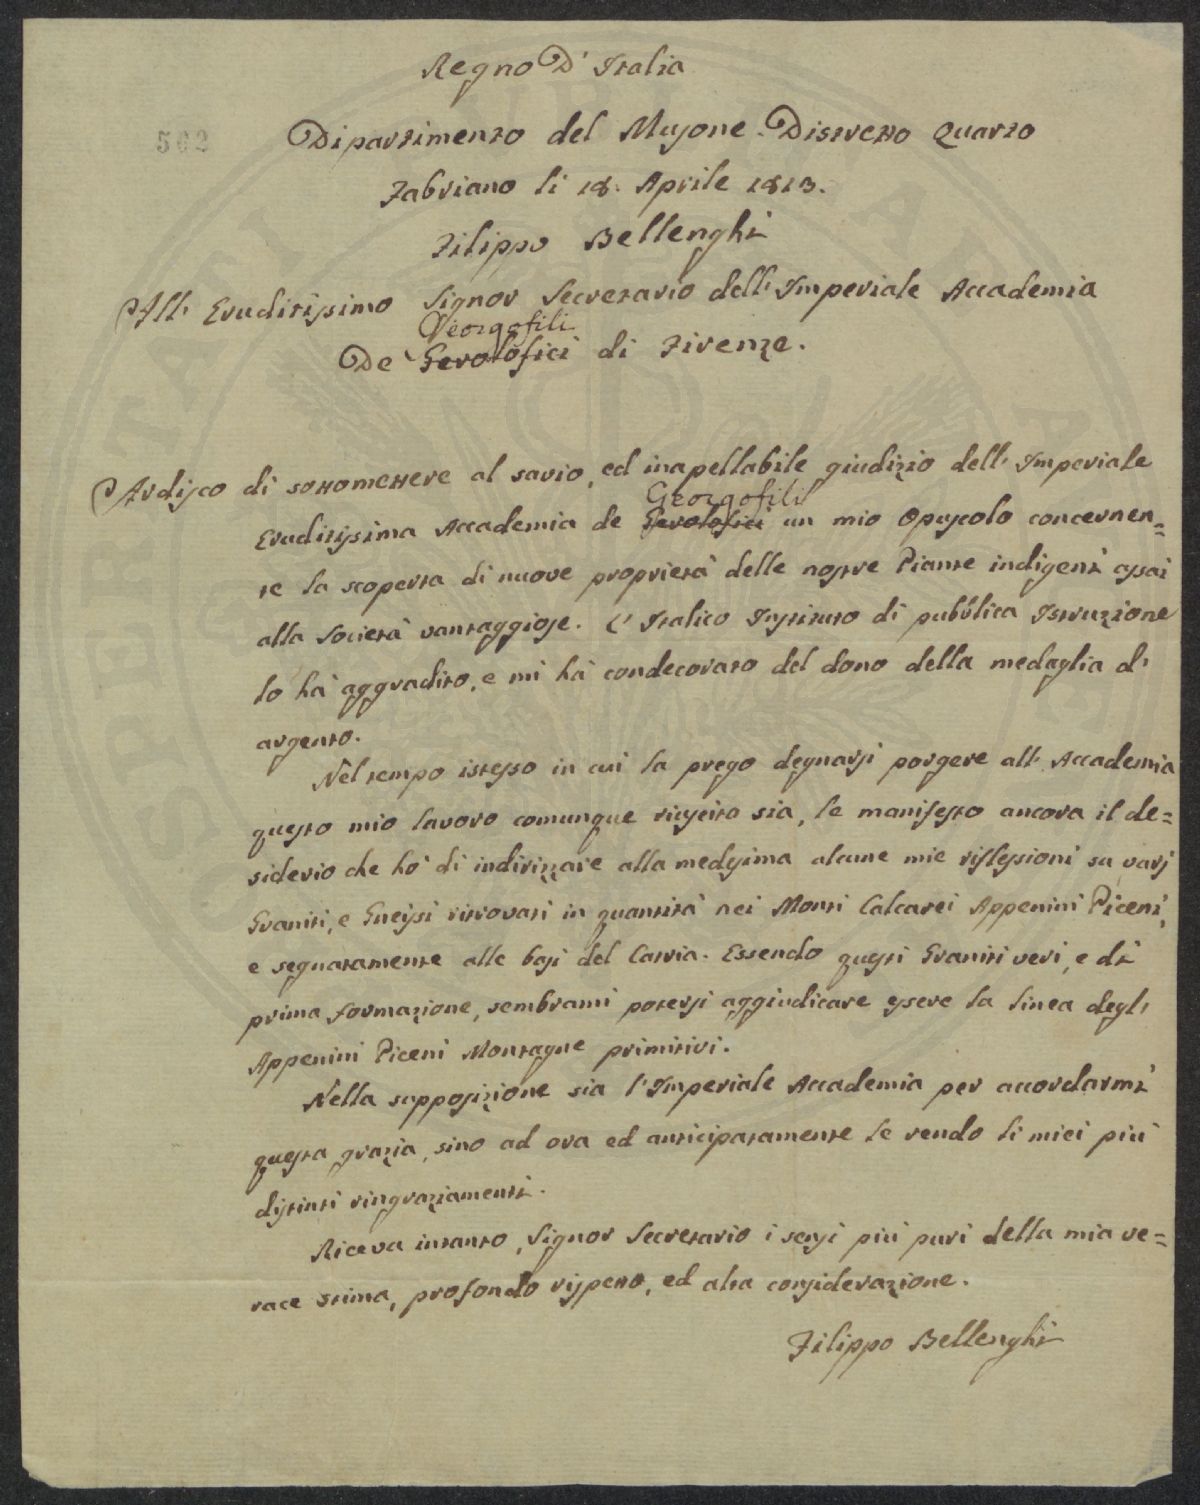 Regno D' Italia
562
Dipartimento del Musone. Distretto Quarto
Fabriano li 18. Aprile 1813.
Filippo Bellenghi
All' Eruditissimo Signor Secretario dell' Imperiale Accademia
Georgofili
De' Gerolofici di Firenze.
Ardisco di sottomettere al savio, ed inapellabile giudizio dell' Imperiale
Georgofili
Eruditissima Accademia de Gerolofici un mio Opuscolo concernen=
te la scoperta di nuove proprietà delle nostre Piante indigeni assai
alla Società vantaggiose. L' Italico Instituto di pubblica Istruzione
lo hà aggradito, e mi hà condecorato del dono della medaglia d'
argento.
Nel tempo istesso in cui la prego degnarsi porgere all' Accademia
questo mio lavoro comunque riuscito sia, le manifesto ancora il de=
siderio che hò di indirizzare alla medesima alcune mie riflessioni su varj
Graniti, e Gneissi ritrovati in quantità nei Monti Calcarei Appenini Piceni,
e segnatamente alle basi del Catria. Essendo questi Graniti veri, e di
prima formazione, sembrami potersi aggiudicare essere la linea degl'
Appenini Piceni Montagne primitivi.
Nella supposizione sia l'Imperiale Accademia per accordarmi
questa grazia, sino ad ora ed anticipatamente le rendo li miei più
distinti ringraziamenti.
Riceva intanto, Signor Secretario i sensi più puri della mia ve=
race stima, profondo rispetto, ed alta considerazione.
Filippo Bellenghi